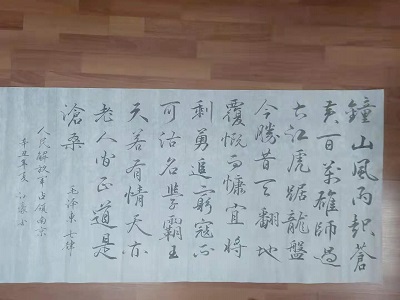 鐘山風雨起蒼
黃百萬雄師過
大江虎踞龍盤
今勝昔天翻地
覆慨而慷宜將
剩勇追窮寇不
可沽名學霸王
天若有情天亦
老人间正道是
滄桑
毛泽东七律
人民解放军占领南京
辛丑年夏